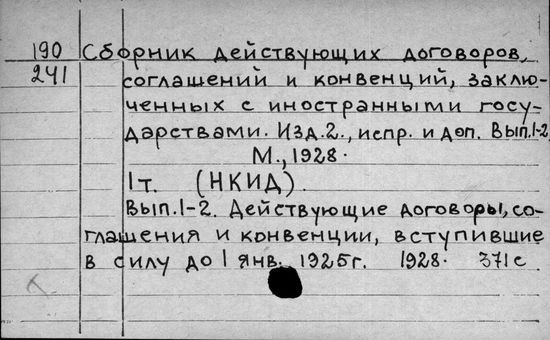 190 Сборник действующих договоров,
241 соглашений и конвенций, заклю-
ченных с иностранными госу-
дарствами. Изд.2., испр. и доп. Вып.1-2
М., 1928.
1т. (НКИД)
Вып.1-2. Действующие договоры, со-
глашения и конвенции, вступившие
в силу до 1 янв. 1925г. 1928. 371с